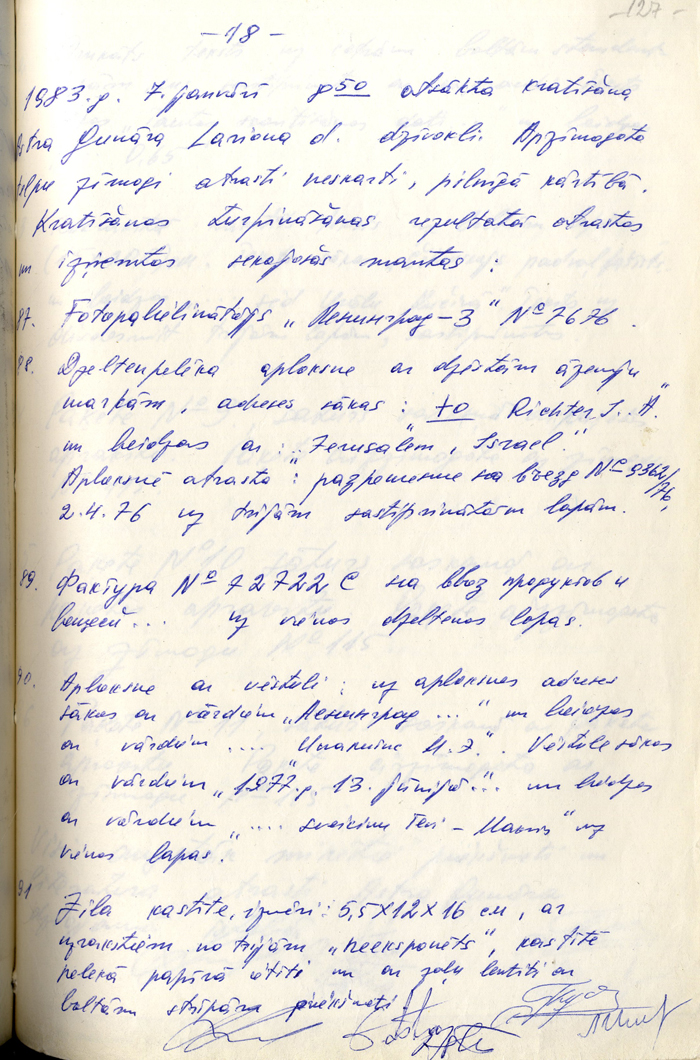 -18-
127-
1983.g. 7. janvārī 9 50 atsākta kratīšana
Astra Gunāra Lariona d. dzīvoklī. Apzīmogoto
telpu zīmogi atrasti neskarti, pilnīgā kārtībā.
Kratīšanas turpināšanas rezultātā atrastas
un izņemtas sekojošās mantas:
87. Fotopalielinātājs „Ленинград-3" № 7676.
88. Dzeltenpelēka aploksne ar dzēstām ārzemju
markām, adrese sākas: „to Richter I. A."
un beidzas ar: „... Jerusalem, Israel."
Aploksnē atrasta: разрешение на въезд № 9362/76,
2.4.76 uz trijām sastiprinātām lapām.
89. Фактура № 72722 С на ввоз продуктов и
вещей... uz vienas dzeltenas lapas.
90. Aploksne ar vēstuli: uz aploksnes adrese
sākas ar vārdiem „Ленинград..." un beidzas
ar vārdiem „.... И.Э.". Vēstule sākas
ar vārdiem „1977.g. 13. jūnijā..." un beidzas
ar vārdiem „.... sveicieni Tevi - " uz
vienas lapas.
91 Zila kastīte, izmēri: 5,5x12x16 см, ar
uzrakstiem no trijām „neeksponēts", kastītē
pelēkā papīrā ietīti un ar zaļu lentīti ar
baltām strīpām pārsieti